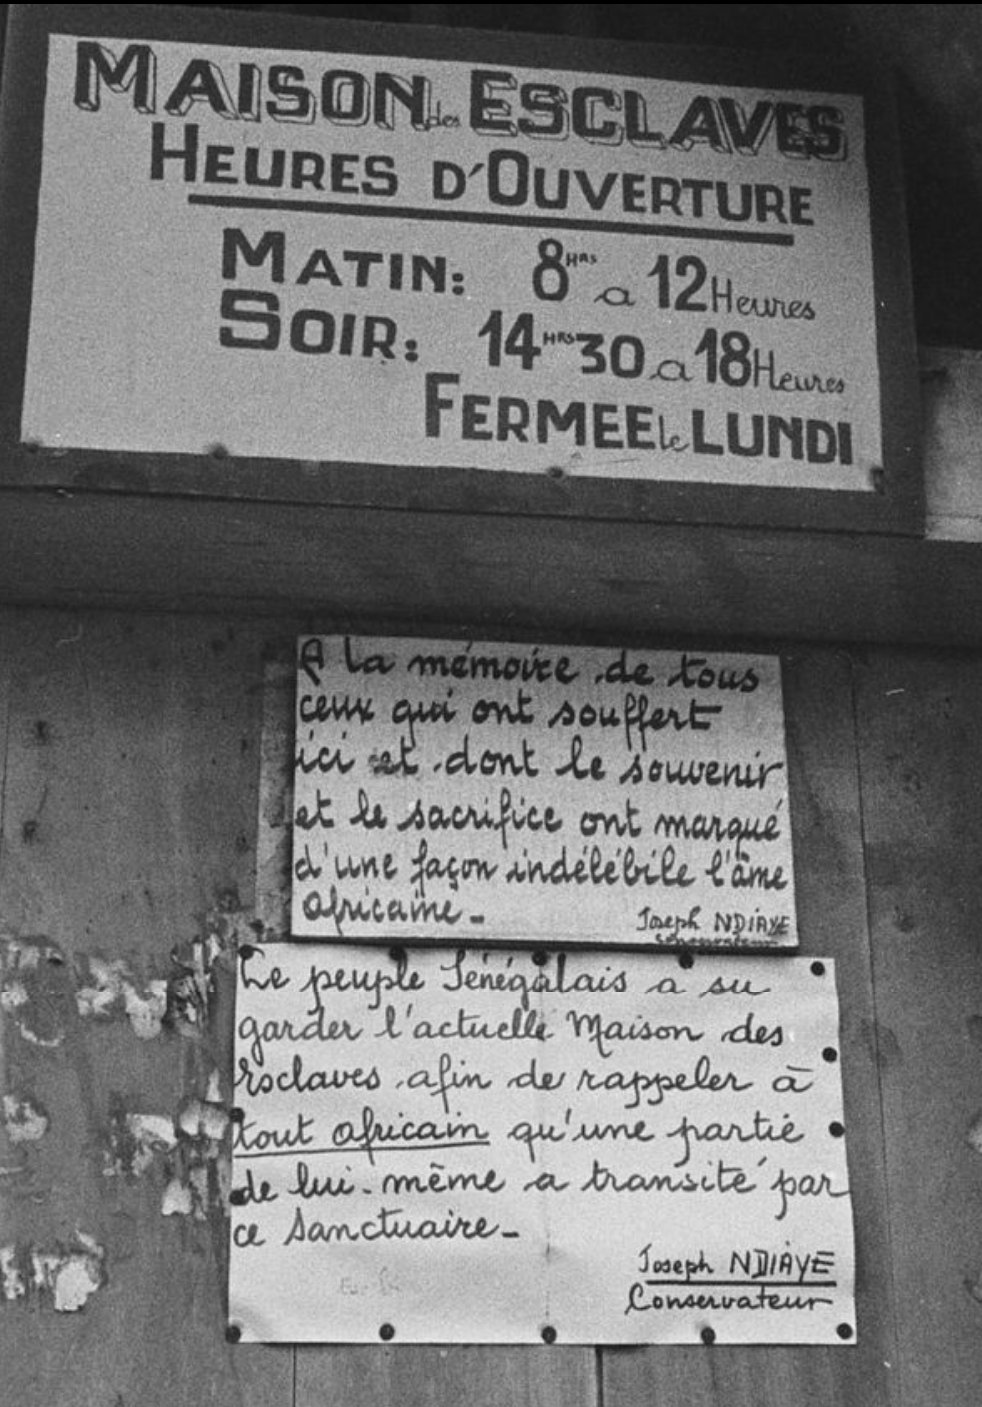 MAISON des ESCLAVES
HEURES D'OUVERTURE
MATIN: 8 HRS a 12 Heures
SOIR: 14 HRS 30 a 18 Heures
FERMEE le LUNDI
A la mémoire de tous
ceux qui ont souffert
ici et dont le souvenir
et le sacrifice ont marqué
d'une façon indélébile l'âme
africaine_
Joseph NDIAYE
Conservateur
Le peuple Sénégalais a su
garder l'actuelle Maison des
Esclaves afin de rappeler à
tout africain qu'une partie
de lui-même a transité par
ce Sanctuaire_
Joseph NDIAYE
Conservateur